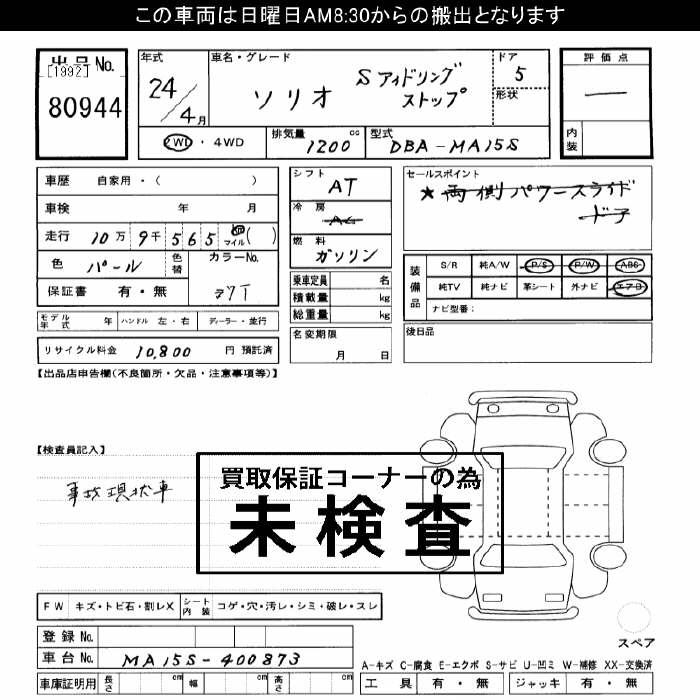 この車両は日曜日AM8:30からの搬出となります
出品No.
[1992]
80944
年式
24/4月
車名・グレード
ソリオ Sアイドリングストップ
ドア
5
形状
評価点
一
内装
2WD・4WD
排気量 1200 cc
型式 DBA-MA15S
車歴 自家用・( )
車検 年 月
走行 10万9千565 マイル( )
色 パール
色替
カラーNo.
保証書 有・無
シフト AT
冷房 AC
燃料 ガソリン
乗車定員 名
積載量 kg
総重量 kg
セールスポイント
★両側パワースライド
ドア
装備品
S/R 純A/W P/S P/W ABS
純TV 純ナビ 革シート 外ナビ エアB
ナビ型番:
モデル年式 年 ハンドル 左・右 ディーラー・並行
名変期限
月 日
後日品
リサイクル料金 10,800 円 預託済
【出品店申告欄(不良箇所・欠品・注意事項等)】
【検査員記入】
事故現状車
買取保証コーナーの為
未検査
FW キズ・トビ石・割レX
シート内装 コゲ・穴・汚レ・シミ・破レ・スレ
登録No.
車台No. MA15S-400873
車庫証明用 長さ cm 幅 cm 高さ cm
スペア
A-キズ C-腐食 E-エクボ S-サビ U-凹ミ W-補修 XX-交換済
工具 有・無 ジャッキ 有・無